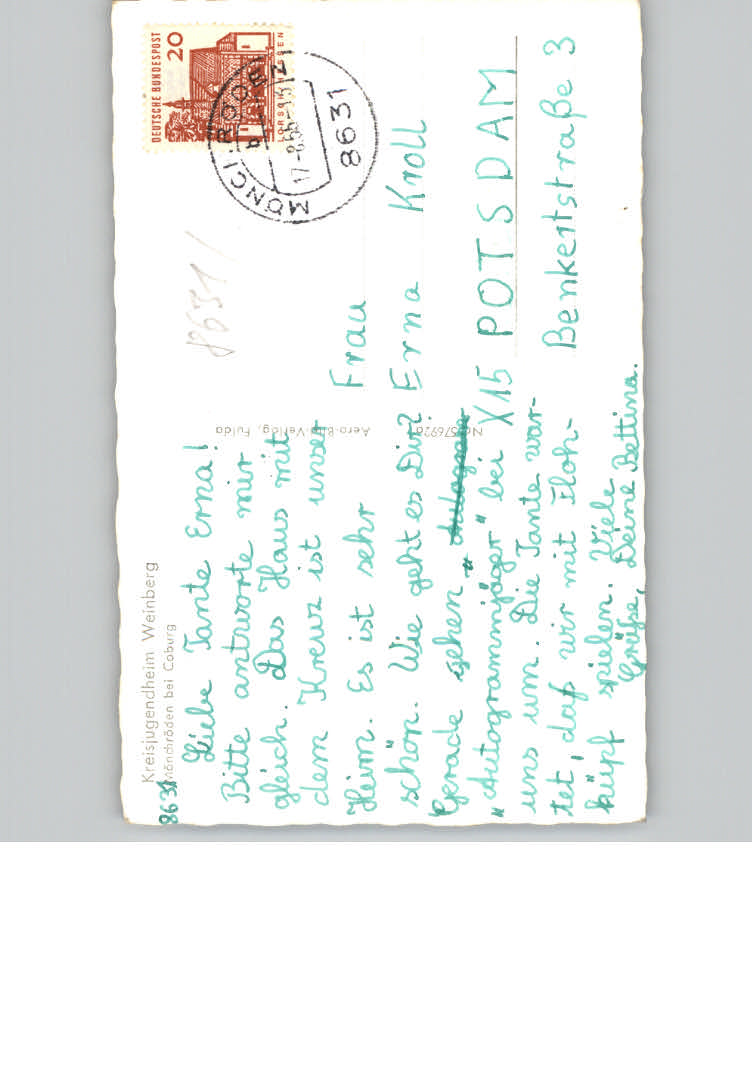 Kreisjugendheim Weinberg
8631 Mönchröden bei Coburg
Liebe Tante Erna!
Bitte antworte mir
gleich. Das Haus mit
dem Kreuz ist unser
Heim. Es ist sehr
schön. Wie geht es Dir?
Gerade gehen "
"Autogrammjäger" bei
uns um. Die Tante war-
tet, daß wir mit Floh-
hüpf spielen. Viele
Grüße, Deine Bettina.
Aero-Bild-Verlag, Fulda
8631
DEUTSCHE BUNDESPOST
20
LORSCH HESSEN
8631
17.-8.66-
Frau
Erna Kroll
X15 POTSDAM
Benkertstraße 3